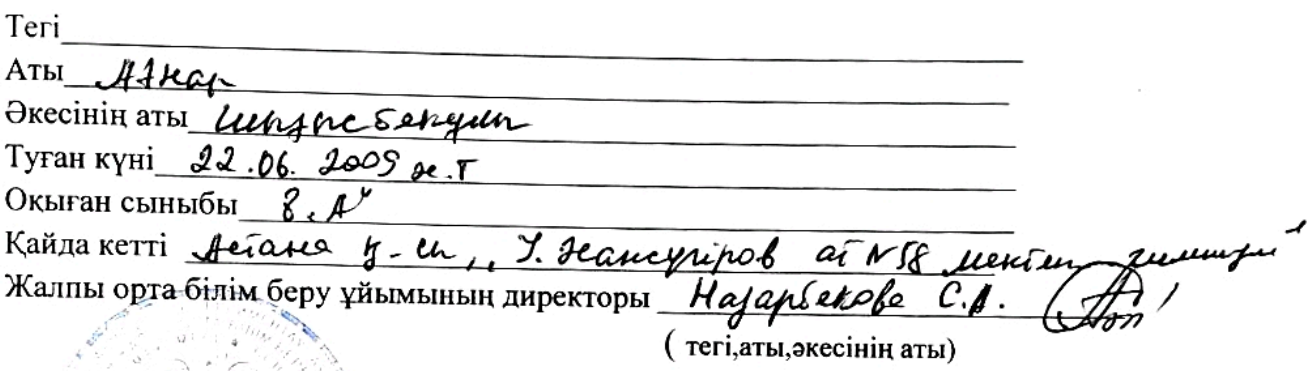 Тегі
Аты Ажар
Әкесінің аты Шыңғысбекұлы
Туған күні 22.06.2009 ж.т
Оқыған сыныбы 8 "А"
Қайда кетті Астана қ-сы, "І. Жансүгіров ат №58 мектеп-гимназия"
Жалпы орта білім беру ұйымының директоры Назарбекова С.А.
( тегі,аты,әкесінің аты)